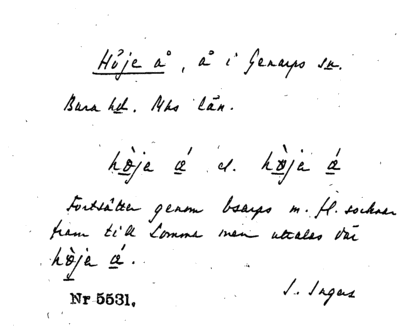 Höje å, å i Genarps sn.
Bara hd. Mhs län.
hö̀ja ǻ el. hö̀ja ǻ
Fortsätter genom Esarps m. fl. socknar
fram till Lomma men uttalas där
hö̀ja ǻ.
I. Ingers
Nr 5531.